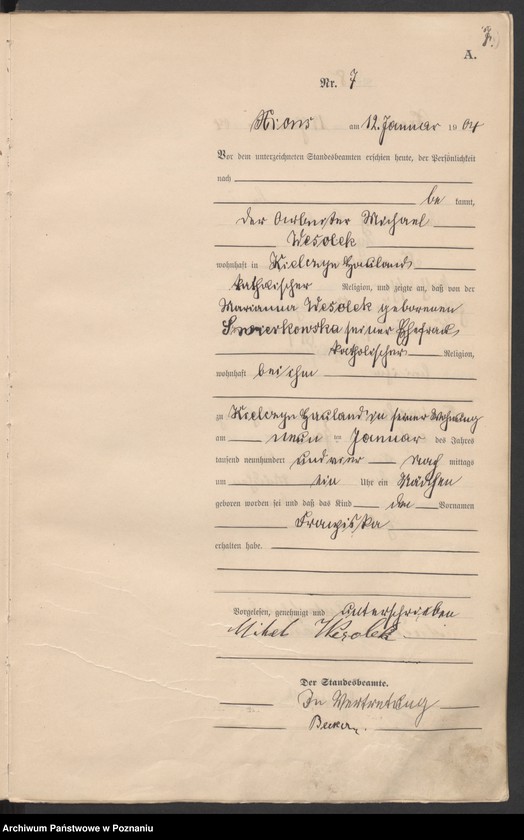 7.
A.
Nr. 7
Xions am 12. Januar 1904
Vor dem unterzeichneten Standesbeamten erschien heute, der Persönlichkeit
nach
be kannt,
der Arbeiter Michael
Wesolek
wohnhaft in Kielczyn Hauland
katholischer Religion, und zeigte an, daß von der
Marianna Wesolek geborenen
Swierkowska seiner Ehefrau
katholischer Religion,
wohnhaft bei ihm
zu Kielczyn Hauland in seiner Wohnung
am neun ten Januar des Jahres
tausend neunhundert und vier nach mittags
um ein Uhr ein Mädchen
geboren worden sei und daß das Kind den Vornamen
Franziska
erhalten habe.
Vorgelesen, genehmigt und unterschrieben
Michel Wesolek
Der Standesbeamte.
In Vertretung
Becker
Archiwum Państwowe w Poznaniu